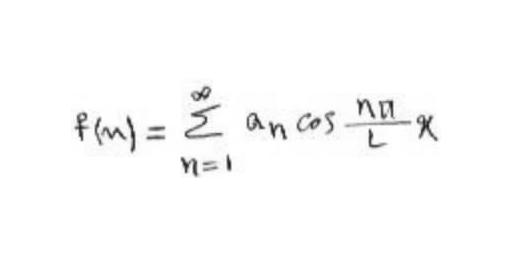 f(n) = \sum_{n=1}^{\infty} a_n \cos \frac{n\pi}{L} x